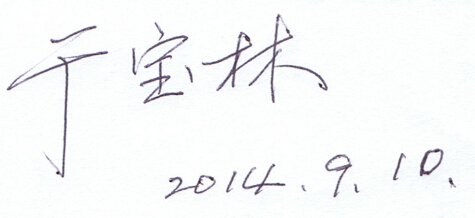 于宝林
2014.9.10.